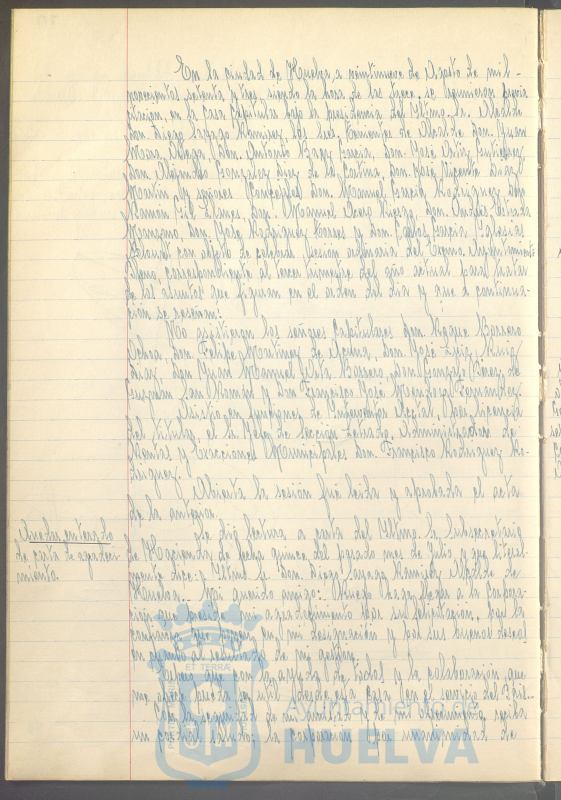 En la ciudad de Huelva, a veintinueve de Agosto de mil
novecientos setenta y tres, siendo la hora de las trece, se reunieron previa
citacion, en la Casa Capitular bajo la presidencia del Iltmo. Sr. Alcalde
Don Diego Sayago Ramirez, los Sres. Tenientes de Alcalde Don Juan
Mora, Don Antonio Baez Garcia, Don José Ortiz Gutierrez,
Don Alejandro Gonzalez Diez de la Cortina, Don José Vicente Diaz
Martin y señores Concejales Don Manuel Garcia Rodriguez, Don
Ramón Gil Don Manuel Otero Don Andrés Estrada
Don José Rodriguez Torres y Don Carlos Garcia Iglesias
con objeto de celebrar sesión ordinaria del Excmo. Ayuntamiento
Pleno, correspondiente al tercer trimestre del año actual para tratar
de los asuntos que figuran en el orden del dia y que a continua-
ción se reseñan:
No asistieron los señores Capitulares Don Roque Barrero
Ochoa, Don Felipe Martinez de Acuña, Don José Luis Ruiz
Diaz, Don Juan Manuel Vela Barrero, Don Gonzalo Perez de
Guzmán San Román y Don Francisco José Fernandez.
Asistió en funciones de Interventor Acctal., por licencia
del titular, el Jefe de Sección Letrado, Administrador de
Rentas y Exacciones Municipales Don Francisco Rodriguez Ro-
driguez.
Abierta la sesión fué leida y aprobada el acta
de la anterior.
Quedar enterado
de carta de agradeci-
miento.
Se dió lectura a carta del Iltmo. Sr. Subsecretario
de Hacienda de fecha quince del pasado mes de Julio y que literal-
mente dice: "Iltmo. Sr. Don Diego Sayago Ramirez Alcalde de
Huelva.- Mi querido amigo: Ruego haga llegar a la Corpora-
ción que preside mi agradecimiento por su felicitación, por la
confianza que ponen en mi designación y por sus buenos deseos
en cuanto a resultados de mi gestión.
Espero que con la ayuda de todos y la colaboración que
me
la de mi amistad y de mi reciba
un cordial saludo, la Corporación que
ET TERRÆ
Ayuntamiento de
HUELVA